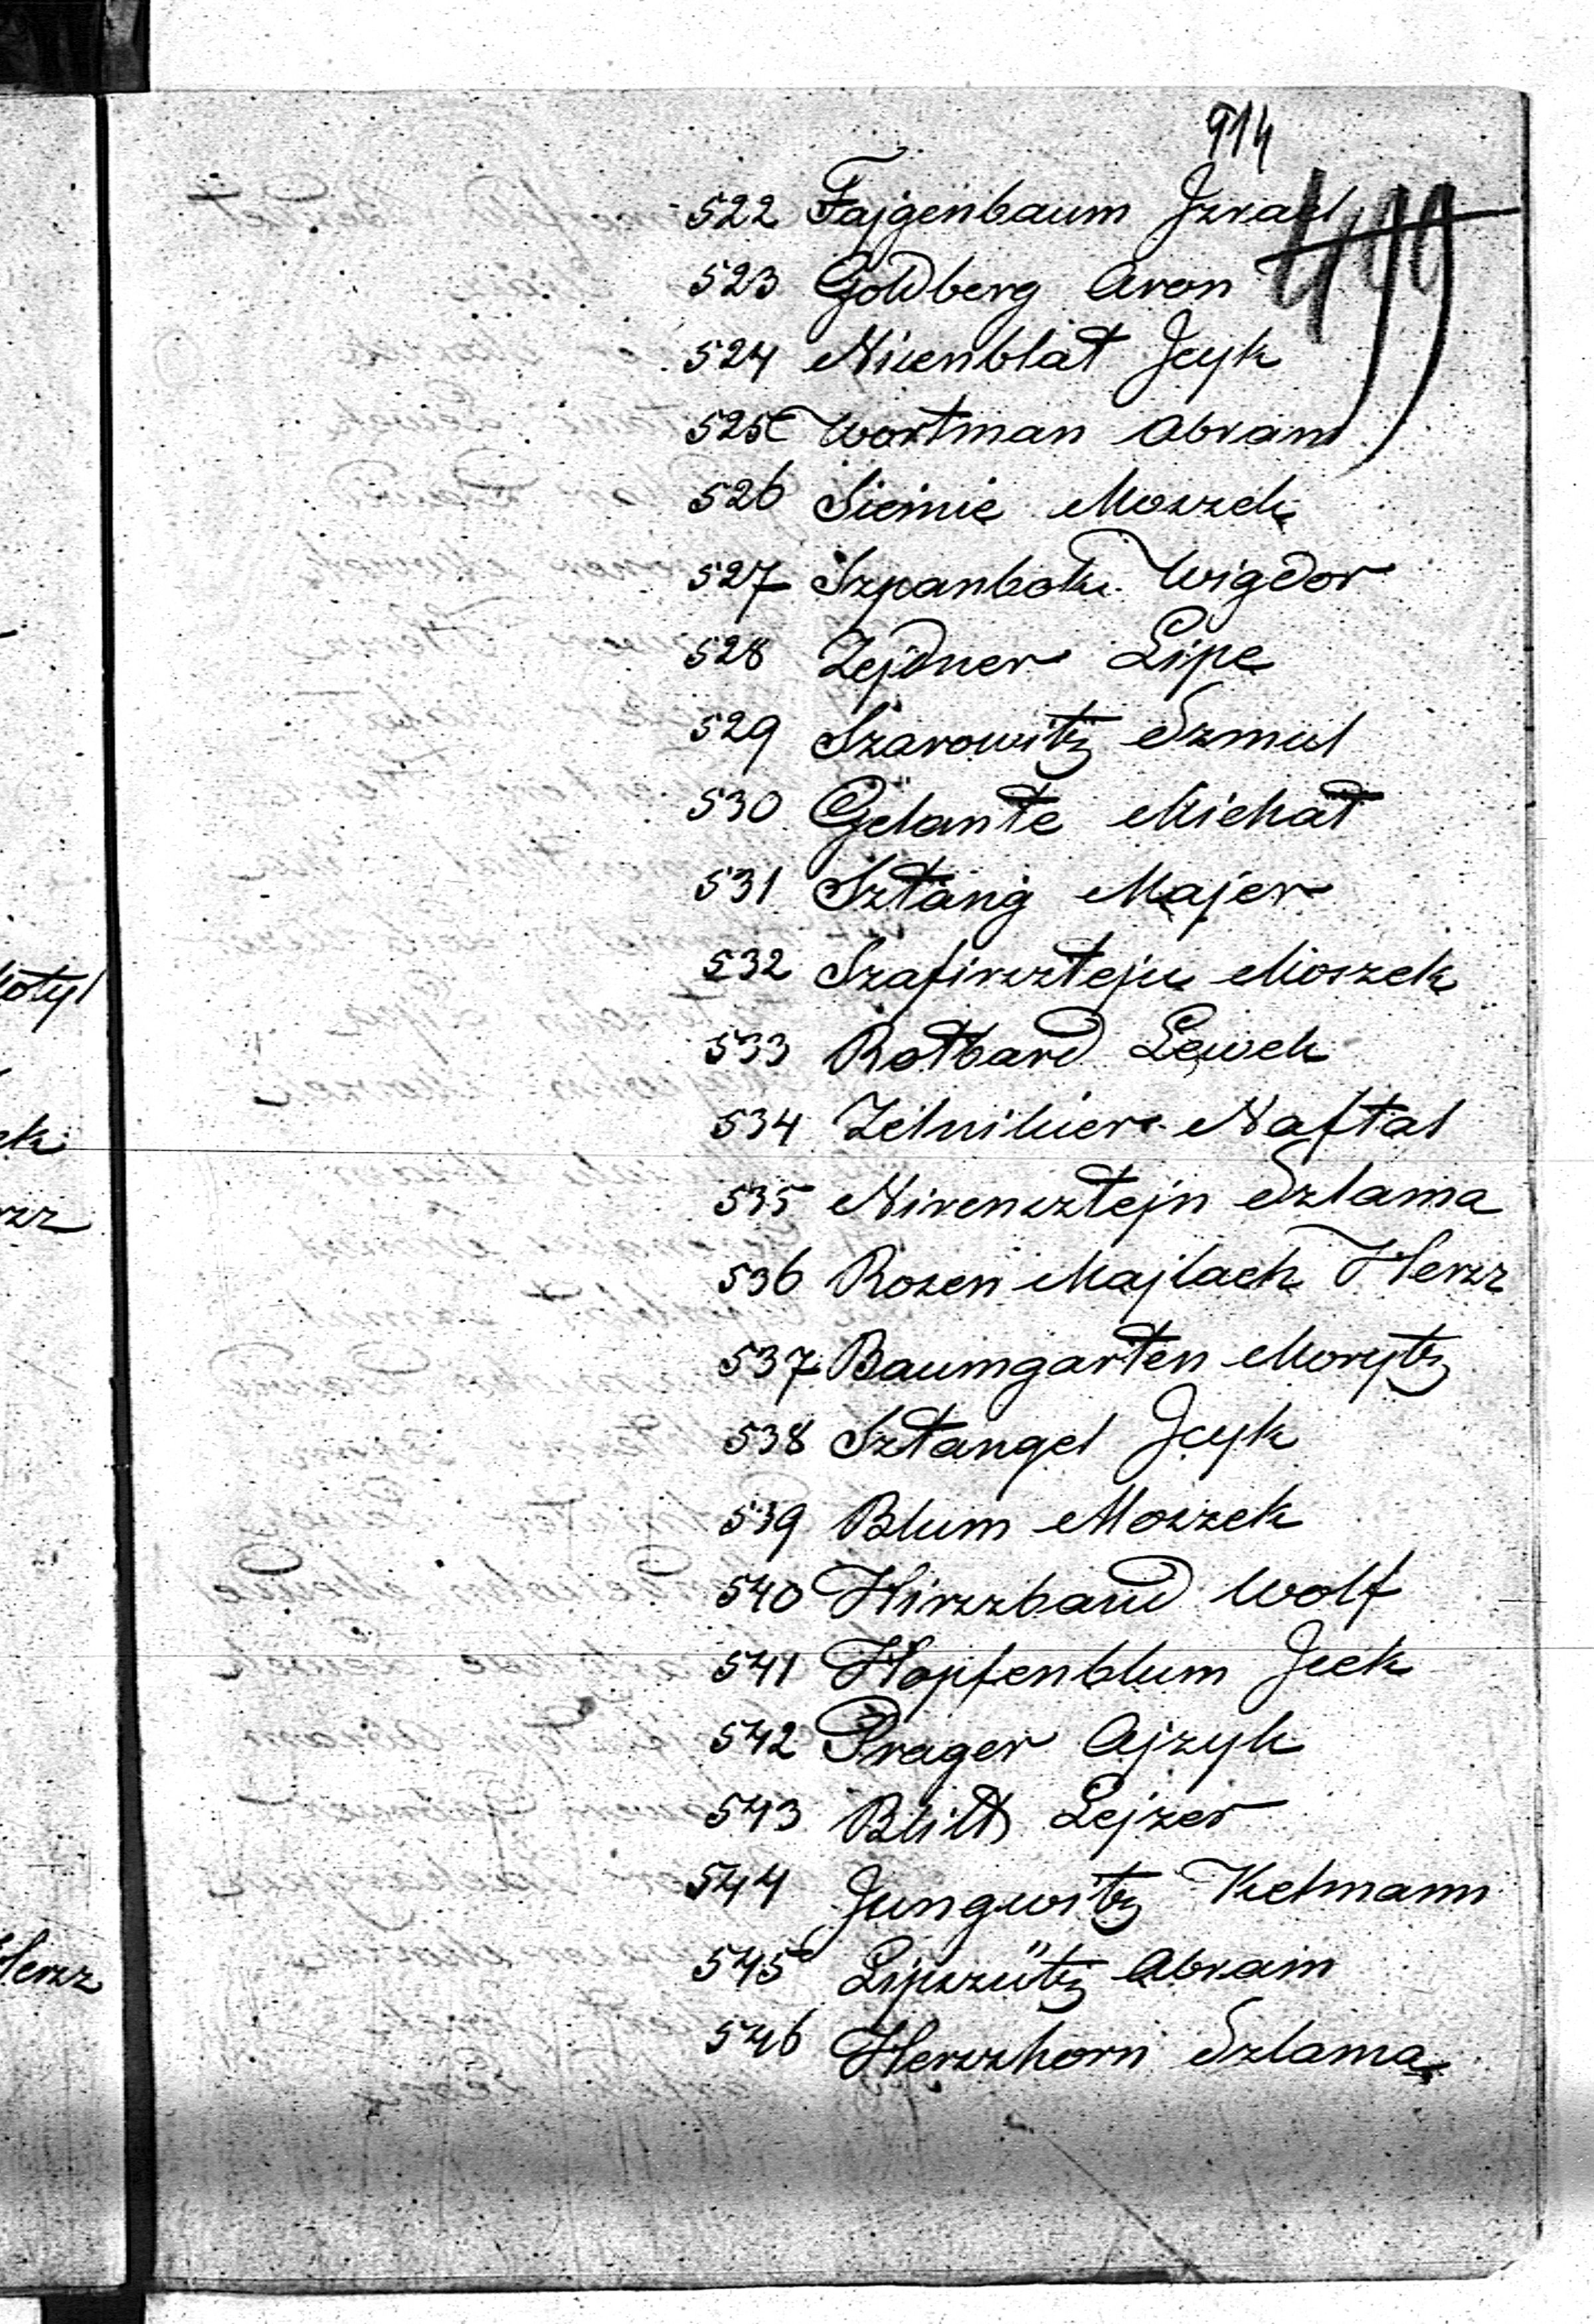 914
499
522 Fajgenbaum Jzrael
523 Goldberg Aron
524 Nisenblat Jcyk
525 Wortman Abram
526 Moszek
527 Wigdor
528 Zejdner Lipe
529 Szarowitz Szmul
530 Gelante Michał
531 Sztang Majer
532 Szafirsztejn Moszek
533 Rotbard Lewek
534 Zelnikier Naftal
535 Nirensztejn Szlama
536 Rozen Majlach Hersz
537 Baumgarten Morytz
538 Sztangel Jcyk
539 Blum Moszek
540 Hirszband Wolf
541 Hopfenblum Jcek
542 Prager Ajzyk
543 Blitt Lejzer
544 Jungwitz Kelmann
545 Lipszütz Abram
546 Herszhorn Szlama